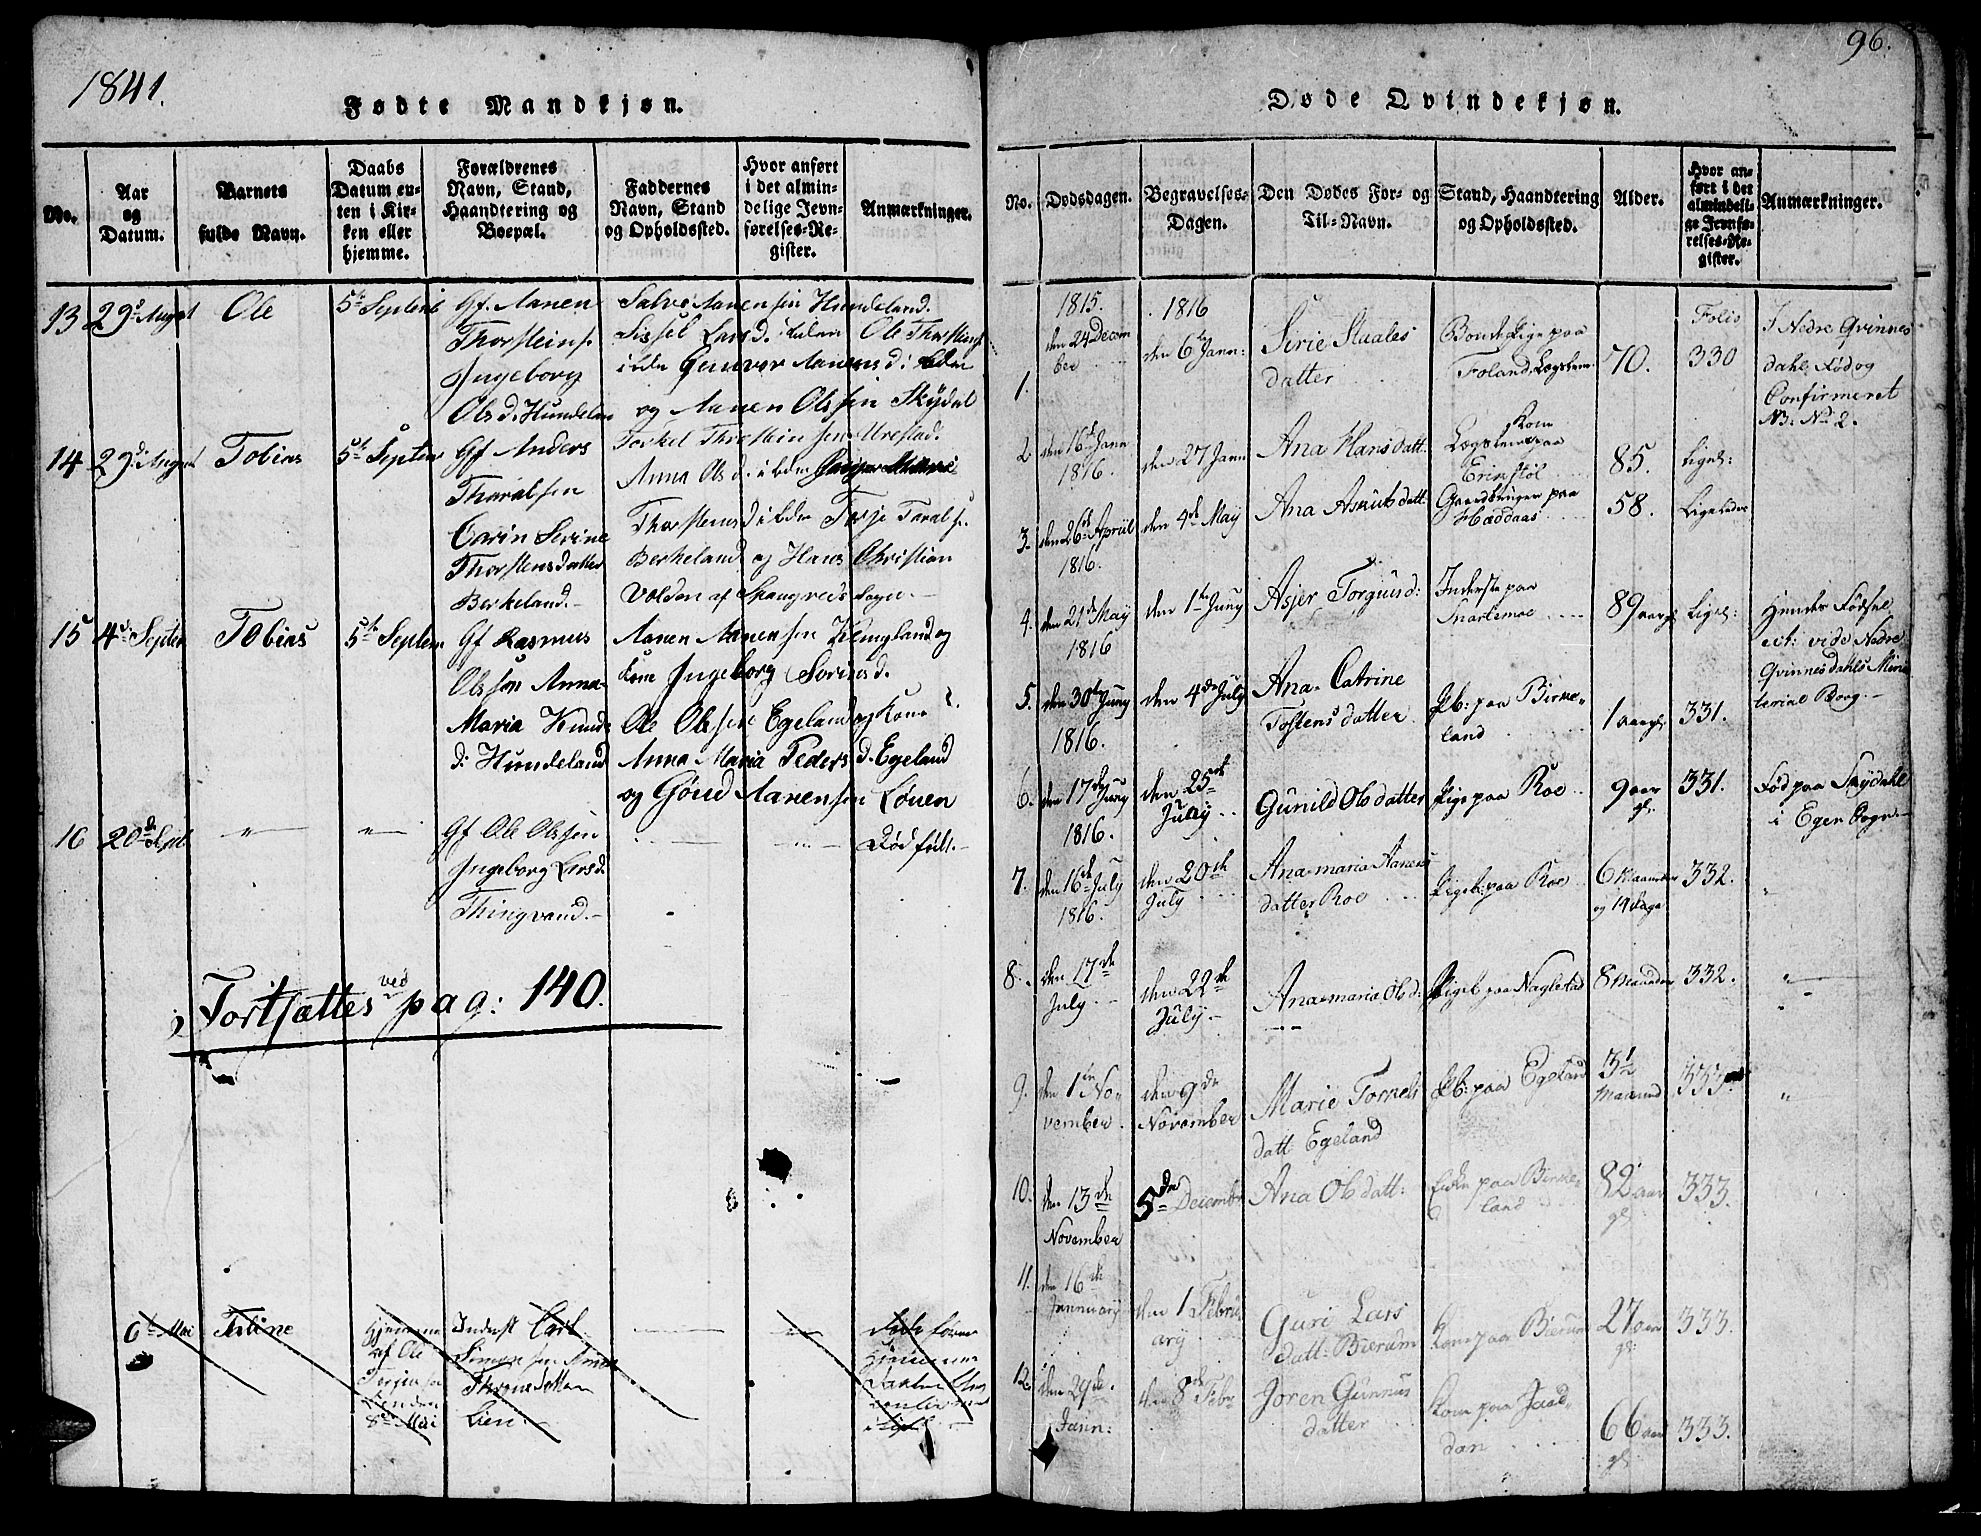 1841.
Fødte Mandkjøn.
No.
Aar
og
Datum.
Barnets
fulde Navn.
Daabs
Datum en-
ten i Kir-
ken eller
hjemme.
Forældrenes
Navn, Stand,
Haandtering og
Boepæl.
Faddernes
Navn, Stand
og Opholdssted.
Hvor anført
i det almin-
delige Jevn-
førelses-Re-
gister.
Anmærkninger.
13 29d August Ole 5te Septemb
Gf. Aanen
Thorsteins.
Ingeborg
Olsd. Hundeland
Salve Aanensen Hundeland.
Sissel Larsd. ibdm Ole Thorstens
ibdm Gunvor Aanensd: ibdm
og Aanen Olssen Skÿdal
14 29d August Tobias 5te Septem
Gf Anders
Tharalsen
Carin Serine
Thorstensdatter
Berkeland.-
Torkel Thorsteinsen Urestad.
Anna Olsd. ibdm
Thorstensd ibdm Terje Taralss.
Berkeland og Hans Christian
Volden af Spangreids Sogn.-
15 4de Septem Tobias 5te Septem
Gf Rasmus
Olssen Anna
Maria Knuds
d: Hundeland
Aanen Aanensen og
Kone Ingeborg Sørensd.
Ole Olssen Egeland og Kone
Anna Maria Pedersd. Egeland
og Gønd Aanensen Løuen
16 20de Sept. -"- -"-
Gf Ole Olssen
Ingeborg Larsd.
Thingvand.-
Dødfødt.-
Fortsættes ved pag: 140.
6te Mai Teline
Hjemme
af Ole
Lenden
8de Mai
Inderst Carl
Simonsen Anne
Thorsdatter
Lien.-
96.
Døde Qvindekjøn.
No.
Dødsdagen.
Begravelses-
Dagen.
Den Dødes For- og
Til-Navn.
Stand, Haandtering
og Opholdssted.
Alder.
Hvor an-
ført i det
almindeli-
ge Jevnfø-
relses-Re-
gister.
Anmærkninger.
1815. 1816
1. den 24 Decem
ber den 6te Jann: Sirie Staales
datter Pige paa
Foland 70. Folio
330 I Nedre Qvinnes
dahl Fød og
Confirmeret
NB. No 2.
2. den 16de Jann
1816. den 27 Jann Ana Hansdatt. Kone
paa
Erikstöl 85. Ligel:
3. den 26de Apriil
1816. den 4de Maÿ Ana Asmibsdatt: Gaardbruger paa
Hæddaas 58. Ligeledes
4. den 21de Maÿ
1816 den 1te Junÿ Asjer Torgiusd: Inderste paa
Snartemoe 89 aargl Ligel: Hendes Fødsel
ect: vide Nedre
Qvinnesdahls Mini
terial Boog.-
5. den 30te Junÿ
1816. den 4de Julÿ Ana Catrine
Tostensdatter Pb: paa Birke-
land 1 aargl 331.
6. den 17de Junÿ
1816. den 25de
Julÿ Gunild Olsdatter Pige paa Roe 9 aar
gl 331. Fød paa Skÿdahl
i Egen Sogn.-
7. den 16de Julÿ
1816. den 20de
Julÿ Ana-maria Aanens
datter Roe Pigeb: paa Roe 6 Maaneder
og 14 dage 332. "
8. den 17de
Julÿ den 22de
Julÿ.- Ana-maria Olsd: Pigeb paa Naglestad 8 Maaneder 332. "
9. den 1te No-
vember den 9de
November Marie Tornels
datt: Egeland Pb: paa Egeland 3 1/2
Maaned 333. "
10. den 13de
November 5de Decembr Ana Olsdatt: Enke paa Birke-
land 82 aar
gl 333.
11. den 16de
Jannuarÿ den 1 Febru
arÿ Guri Lars
datt: Bierum Kone paa Bierum 27 aar
gl 333.
12. den 29de
Jann: den 8de Febr Joren Gunnus
datter Kone paa Jaad-
dan 66 aar
gl 333.